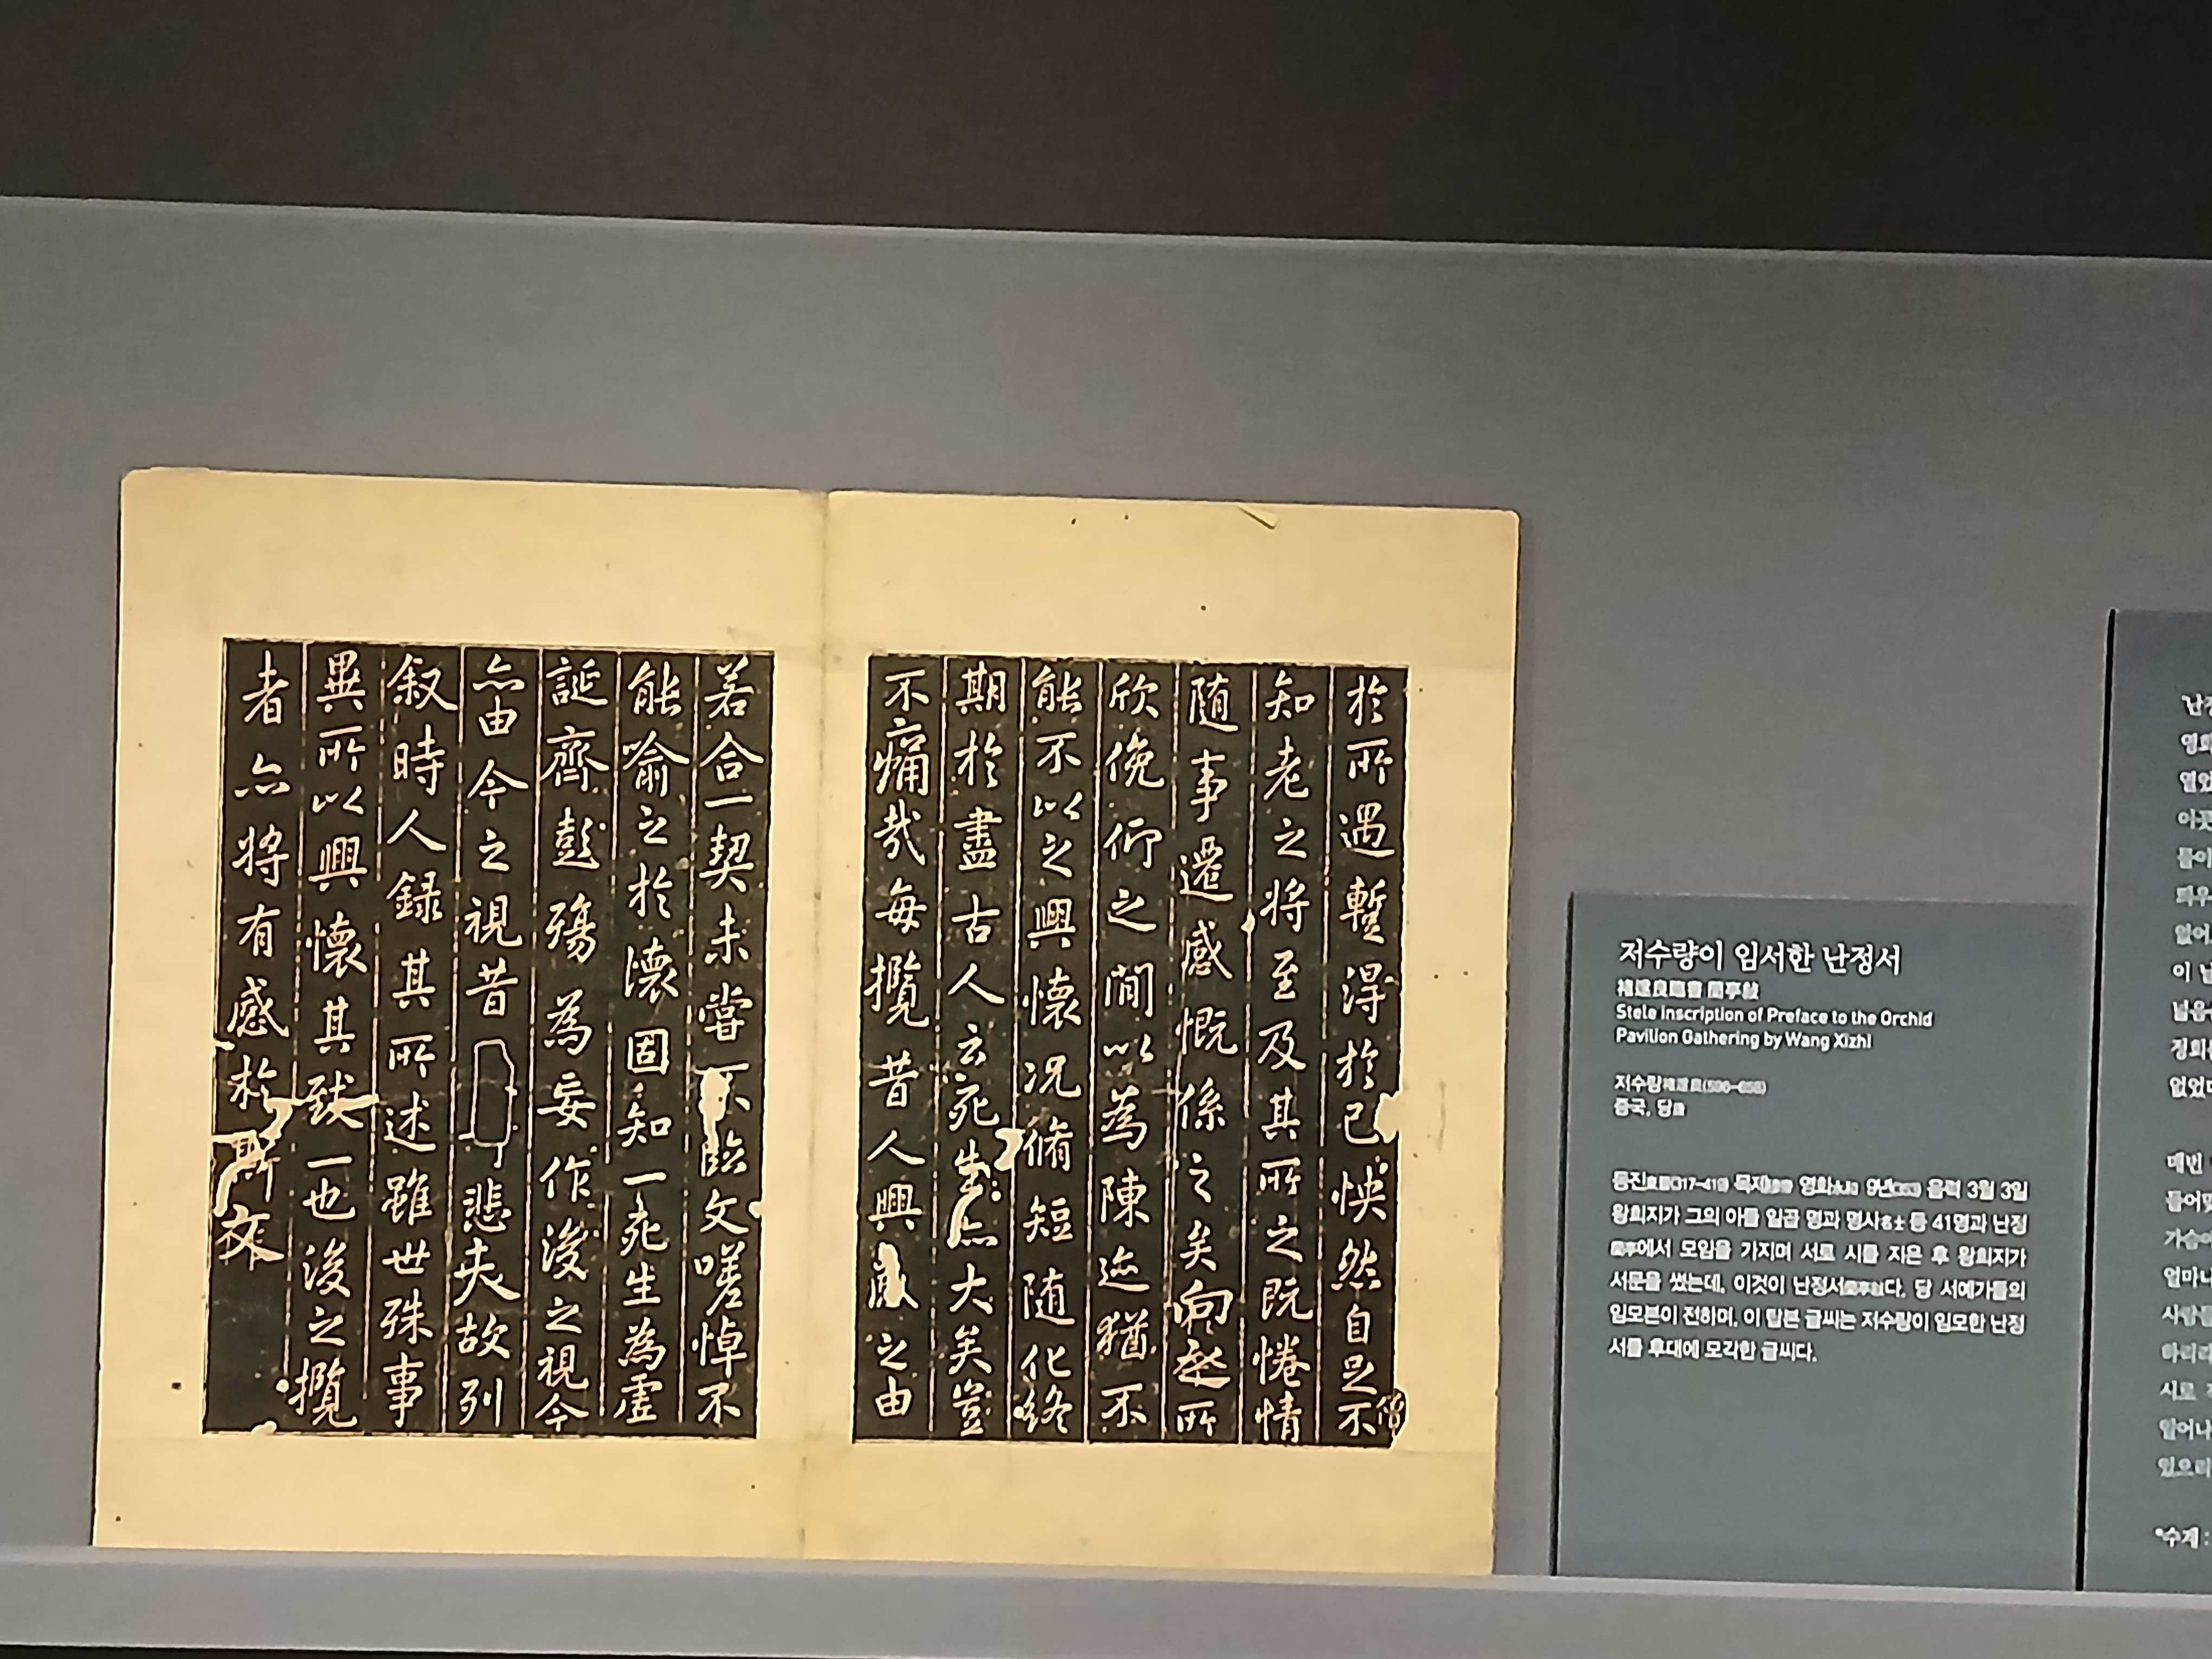 於所遇暫得於己怏然自足不
知老之將至及其所之既惓情
随事遷感慨係之矣向之所
欣俛仰之閒以為陳迹猶不
能不以之興懷況脩短随化終
期於盡古人云死生亦大矣豈
不痛哉每攬昔人興感之由
若合一契未嘗不臨文嗟悼不
能喻之於懷固知一死生為虛
誕齊彭殤為妄作後之視今
亦由今之視昔悲夫故列
叙時人錄其所述雖世殊事
異所以興懷其致一也後之攬
者亦將有感於斯文
저수량이 임서한 난정서
褚遂良臨書 蘭亭敍
Stele Inscription of Preface to the Orchid
Pavilion Gathering by Wang Xizhi
저수량褚遂良(596-658)
중국, 당唐
동진東晉(317-419) 목제穆帝 영화永和 9년(353) 음력 3월 3일
왕희지가 그의 아들 일곱 명과 명사名士 등 41명과 난정
蘭亭에서 모임을 가지며 서로 시를 지은 후 왕희지가
서문을 썼는데, 이것이 난정서蘭亭敍다. 당 서예가들의
임모본이 전하며, 이 탑본 글씨는 저수량이 임모한 난정
서를 후대에 모각한 글씨다.
이
매번
*수계 :